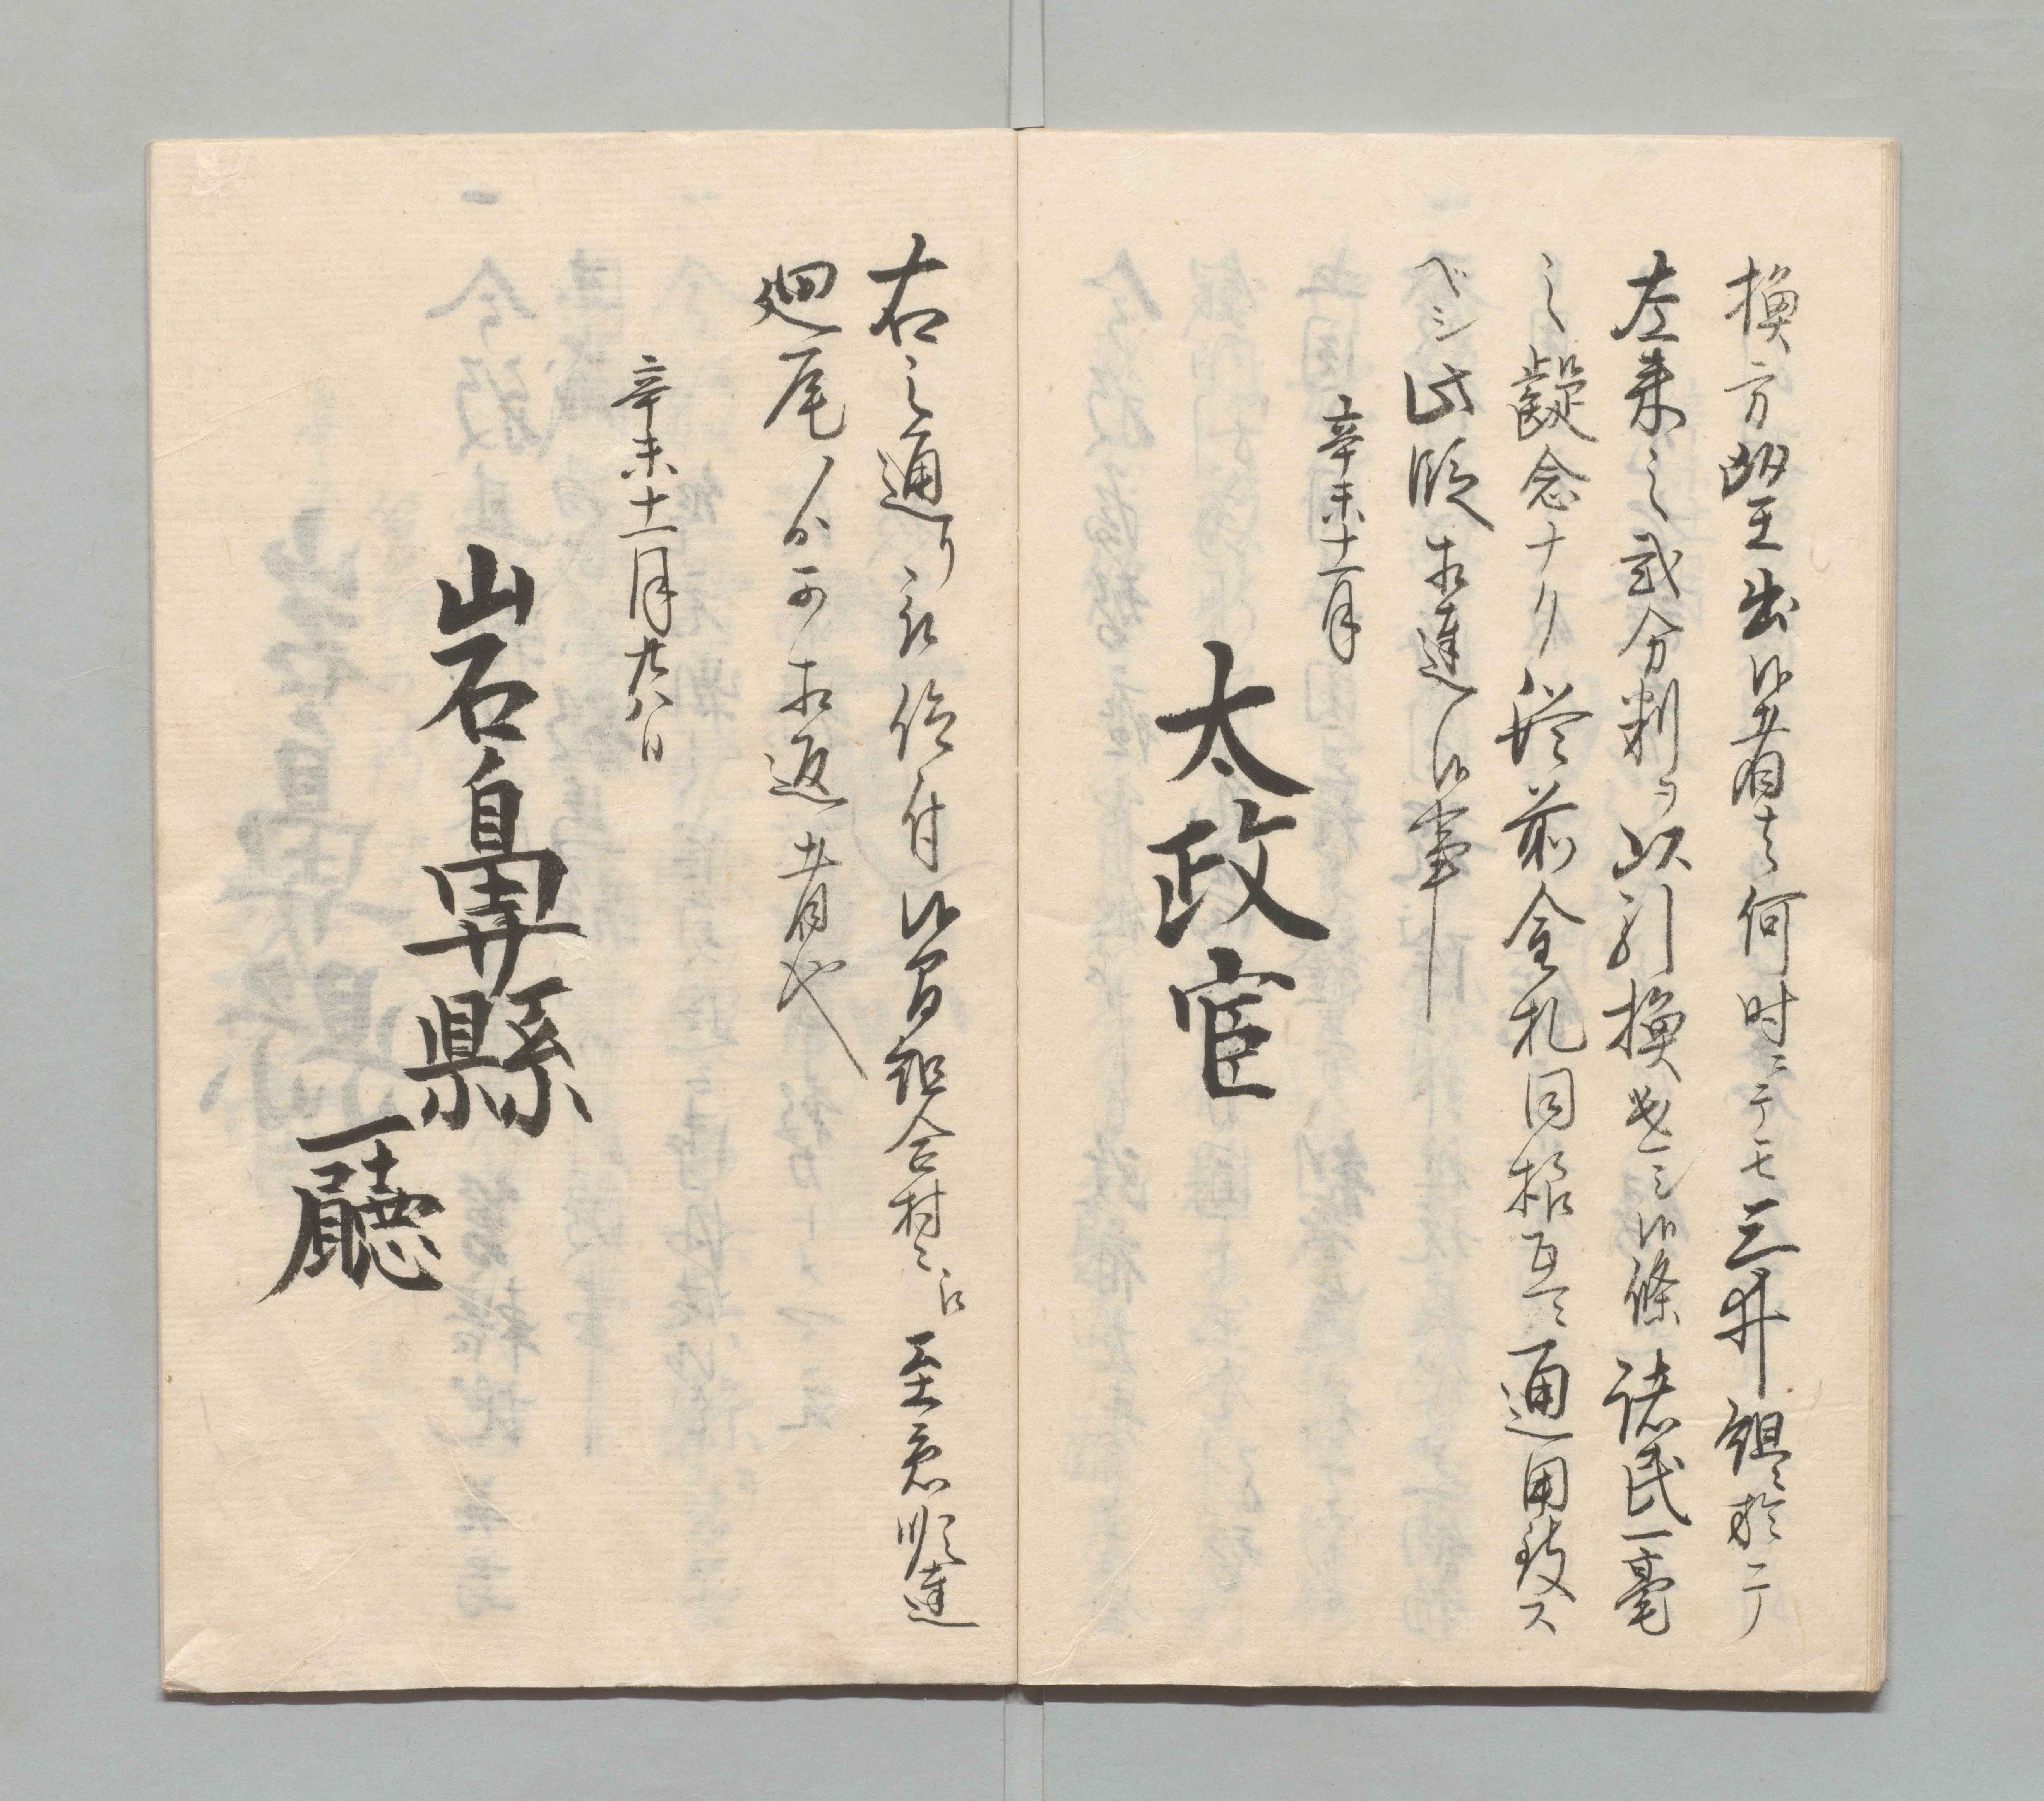 換方望出候者有之者何時ニテモ三井組ニ於テ
在来之弐分判ヲ以引換セシ候條諸民一毫
之疑念ナク従前金札同様互ニ通用致ス
ベシ此段相達候事
辛未十一月
太政官
右之通リ被仰付候間組合村々江至急順達
廻尾ノ可相返者也
辛未十一月廿八日
岩鼻縣
廳